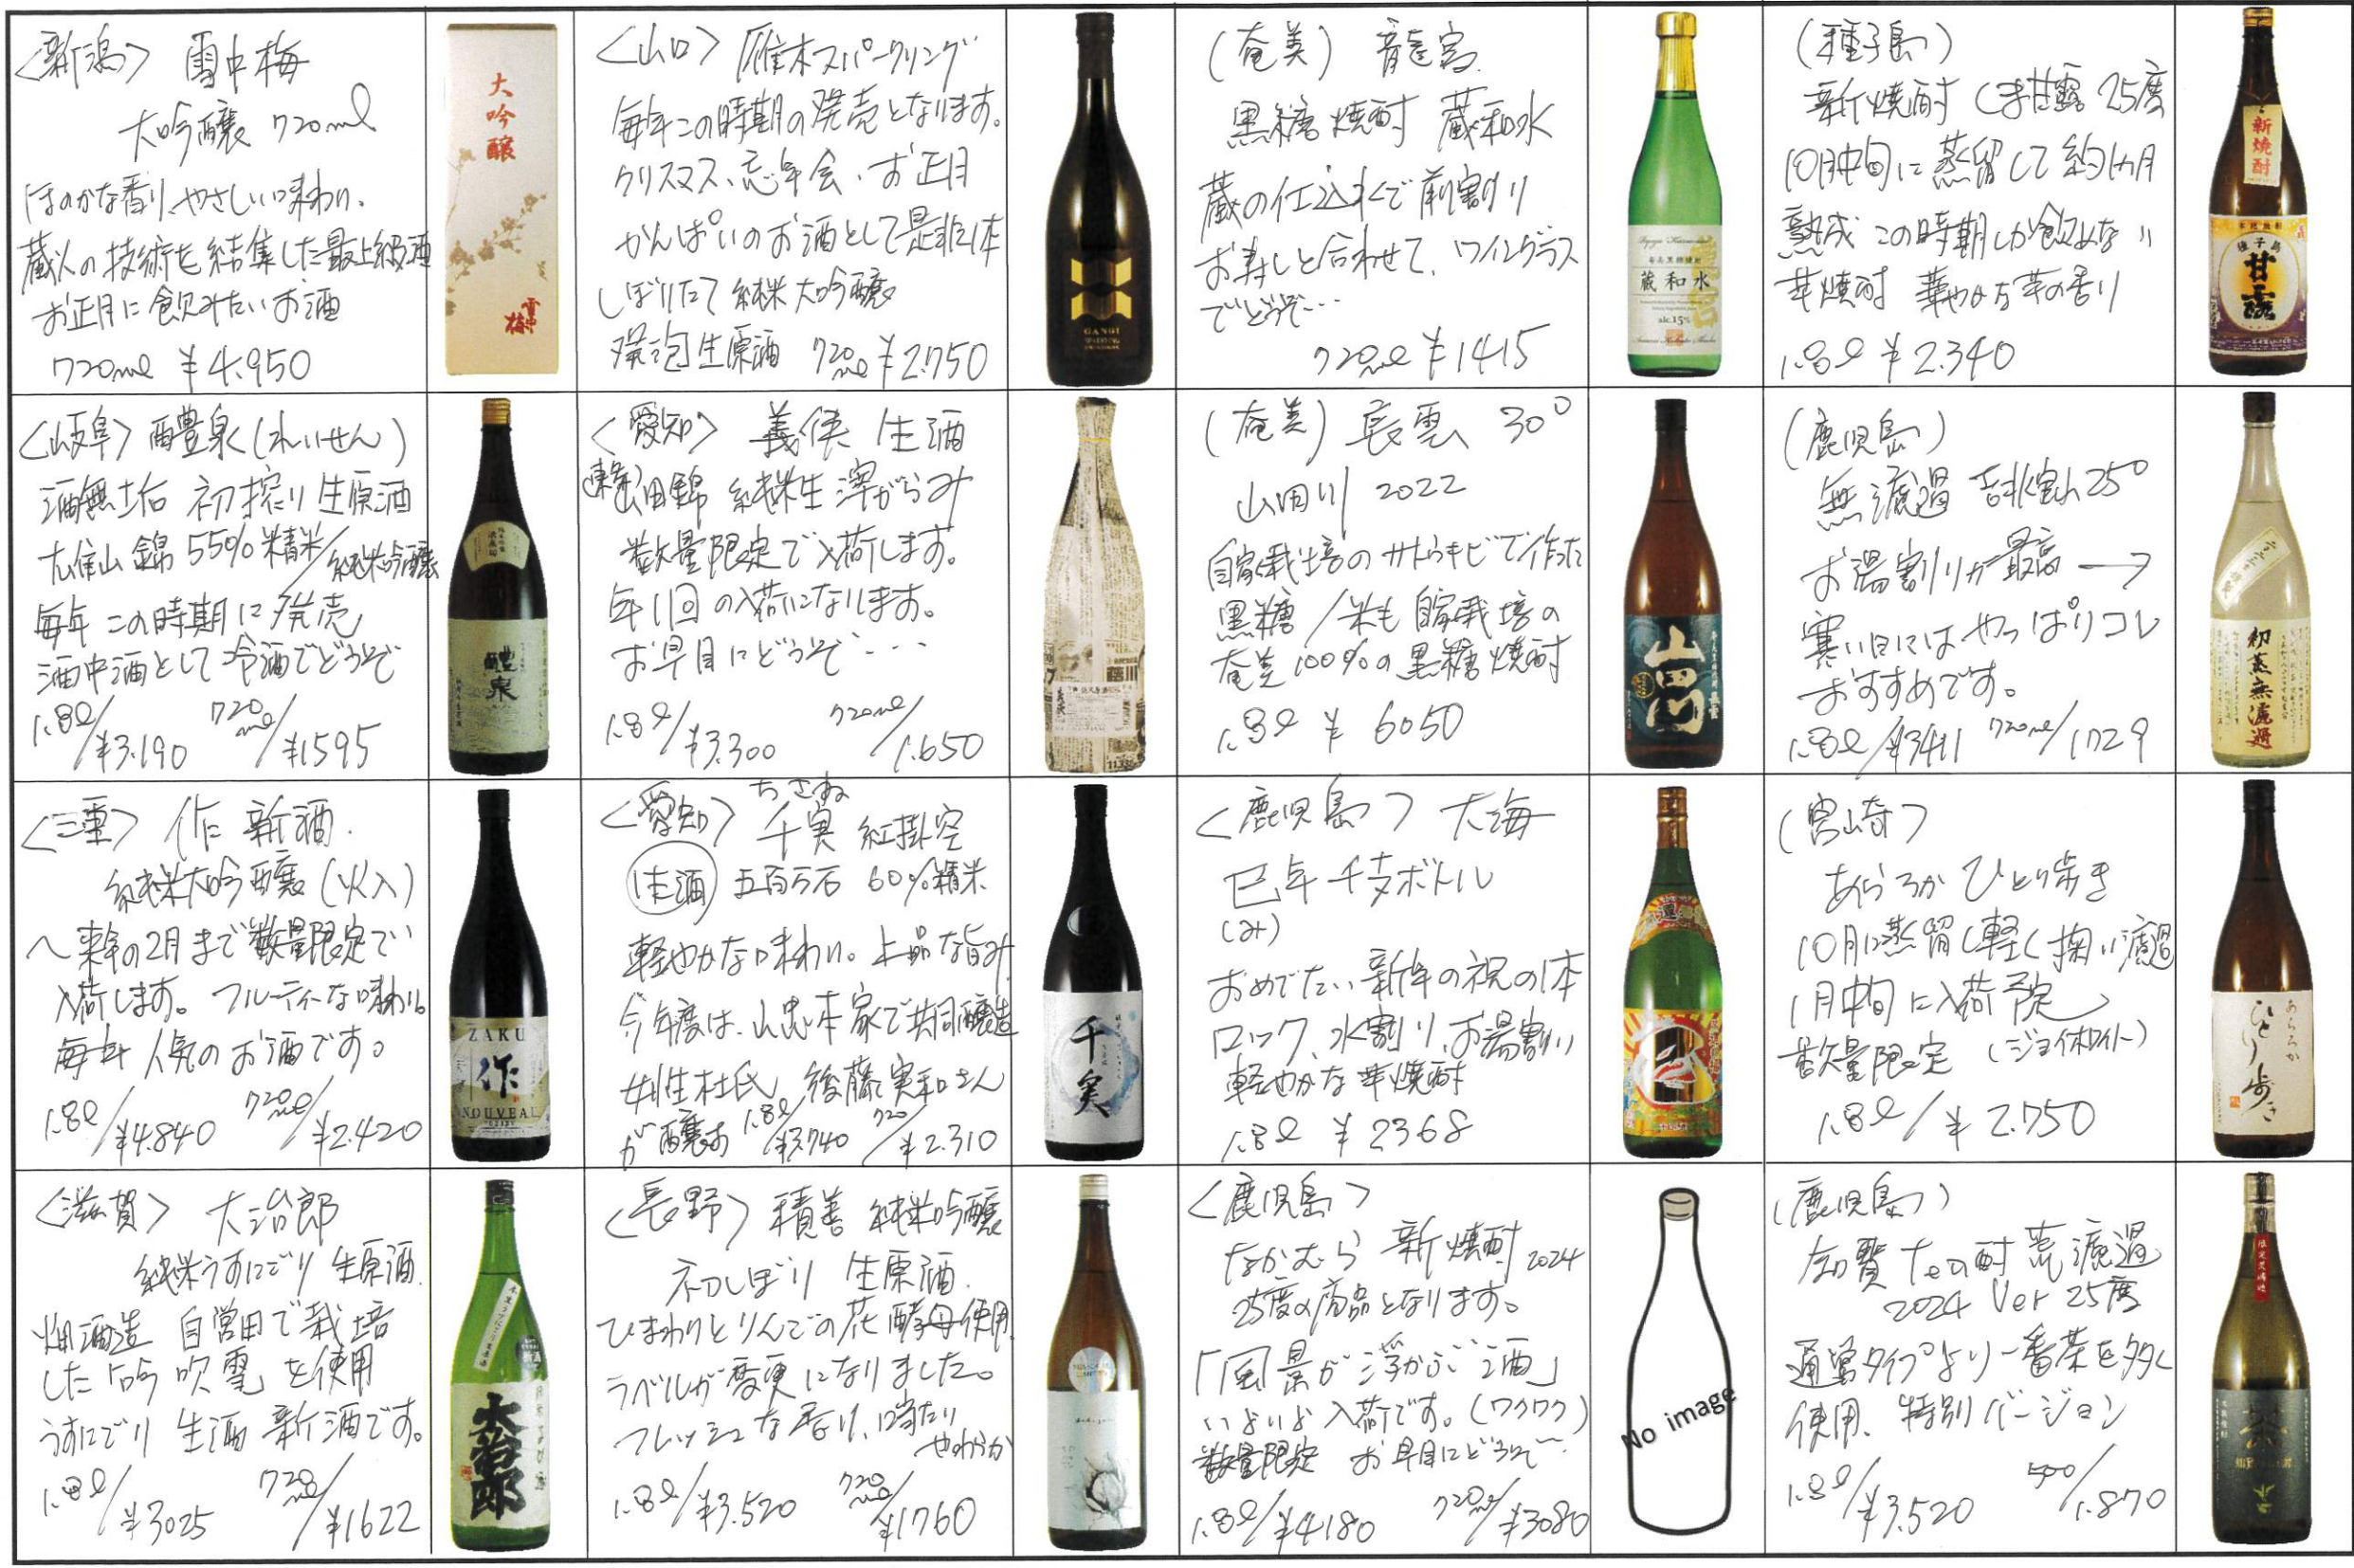 <新潟> 雪中梅
大吟醸 720ml
ほのかな香り、やさしい味わい、
蔵人の技術を結集した最上級酒
お正月に飲みたいお酒
720ml ¥4.950
大吟醸
雪中梅
<山口> 雁木スパークリング
毎年この時期の発売となります。
クリスマス、忘年会、お正月
かんぱいのお酒として是非1本
しぼりたて純米大吟醸
発泡生原酒 720ml ¥2.750
GANGI
(奄美) 龍宮
黒糖焼酎 蔵和水
蔵の仕込水で前割り
お寿しと合わせて、ワイングラス
でどうぞ…
720ml ¥1415
蔵和水
alc.15%
(種子島)
新焼酎 しま甘露 25度
10月中旬に蒸留して約1カ月
熟成 この時期しか飲めない
芋焼酎 華やかな芋の香り
1.8l ¥2.340
新焼酎
種子島
甘露
<岐阜> 醴泉(れいせん)
酒無垢 初搾り 生原酒
太雄山錦 55%精米/純米吟醸
毎年この時期に発売
酒中酒として冷酒でどうぞ
1.8l/¥3.190 720ml/¥1595
醴泉
<愛知> 義侠 生酒
(東条)山田錦 純米生 滓がらみ
数量限定で入荷します。
年1回の入荷になります。
お早目にどうぞ・・・
1.8l/¥3.300 720ml/1.650
(奄美) 長雲 30°
山田川 2022
自家栽培のサトウキビで作った
黒糖/米も自家栽培の
奄美100%の黒糖焼酎
1.8l ¥6050
山田川
(鹿児島)
無濾過 吉兆雲 25°
お湯割りが最高→
寒い日にはやっぱりコレ
おすすめです。
1.8l/¥3411 720ml/1729
初蒸無濾過
<三重> 作 新酒.
純米大吟醸(火入)
〜来年の2月まで数量限定で
入荷します。フルーティーな味わい。
毎年人気のお酒です。
1.8l/¥4.840 720ml/¥2.420
ZAKU
作
NOUVEAU
<愛知> ちさね
千実 紅掛空
生酒 五百万石 60%精米
軽やかな味わい。上品な旨み
今年度は、山忠本家で共同醸造
女性杜氏 後藤実和さん
が醸す 1.8l/¥3.740 720/¥2.310
千実
<鹿児島> 大海
巳年 干支ボトル
(み)
おめでたい新年の祝の1本
ロック、水割り、お湯割り
軽やかな芋焼酎
1.8l ¥2368
巳
(宮崎)
あらろか ひとり歩き
10月に蒸留し軽く掬い濾過
1月中旬に入荷予定
数量限定 (ジョイホワイト)
1.8l/¥2.750
あらろか
ひとり歩き
<滋賀> 大治郎
純米うすにごり 生原酒.
畑酒造 自営田で栽培
した吟吹雪を使用
うすにごり 生酒 新酒です。
1.8l/¥3025 720ml/¥1622
大治郎
<長野> 積善 純米吟醸
初しぼり 生原酒.
ひまわりとりんごの花酵母使用
ラベルが変更になりました。
フレッシュな香り、口当たり
やわらか
1.8l/¥3.520 720ml/¥1760
<鹿児島>
なかむら 新焼酎 2024
25度の商品となります。
「風景が浮かぶ酒」
いよいよ入荷です。(ワクワク)
数量限定 お早目にどうぞ〜
1.8l/¥4180 720ml/¥3080
No image
(鹿児島)
知覧Tea酎 荒濾過
2024 Ver 25度
通常タイプより一番茶を多く
使用、特別バージョン
1.8l/¥3.520 500/1.870
茶